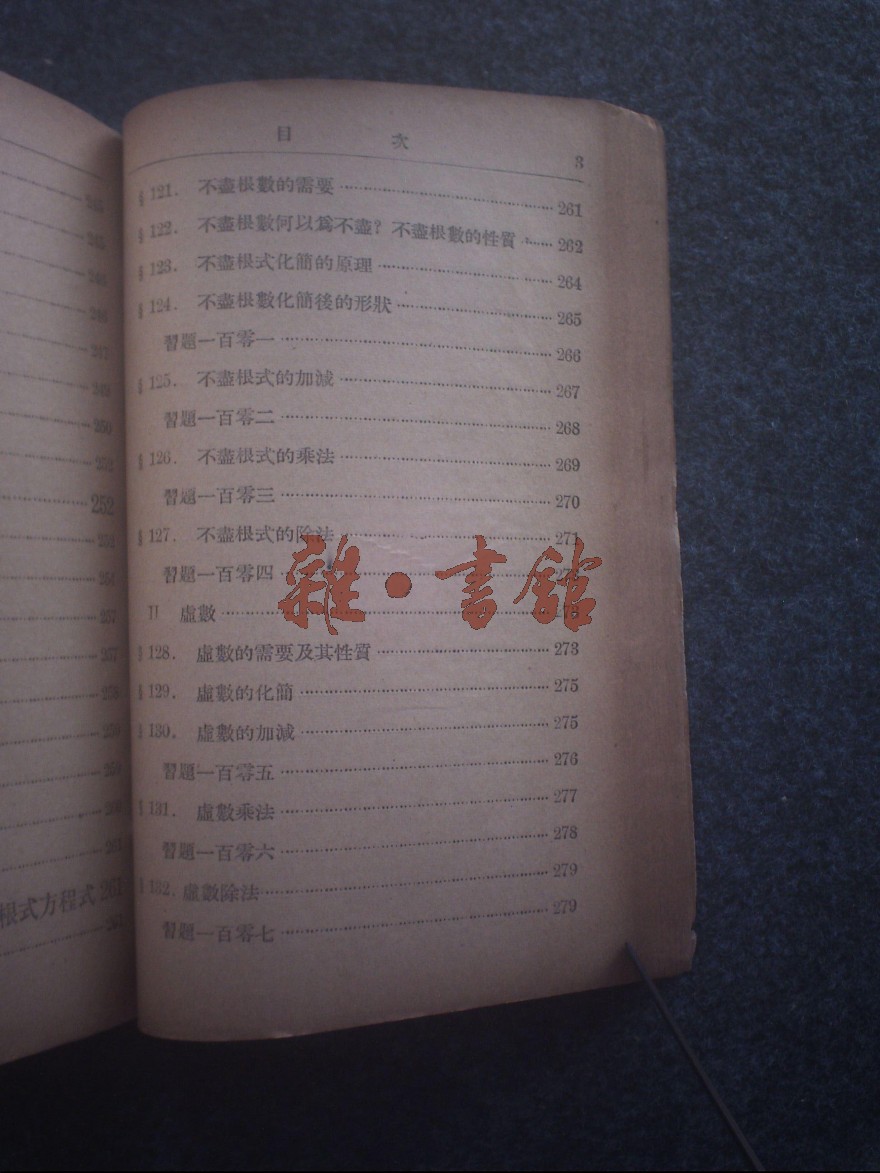 目 次 3
§ 121. 不盡根數的需要 261
§ 122. 不盡根數何以爲不盡？不盡根數的性質 262
§ 123. 不盡根式化簡的原理 264
§ 124. 不盡根數化簡後的形狀 265
習題一百零一 266
§ 125. 不盡根式的加減 267
習題一百零二 268
§ 126. 不盡根式的乘法 269
習題一百零三 270
§ 127. 不盡根式的除法 271
習題一百零四
II 虛數
§ 128. 虛數的需要及其性質 273
§ 129. 虛數的化簡 275
§ 130. 虛數的加減 275
習題一百零五 276
§ 131. 虛數乘法 277
習題一百零六 278
§ 132. 虛數除法 279
習題一百零七 279
雜·書館
250
252
252
根式方程式 261